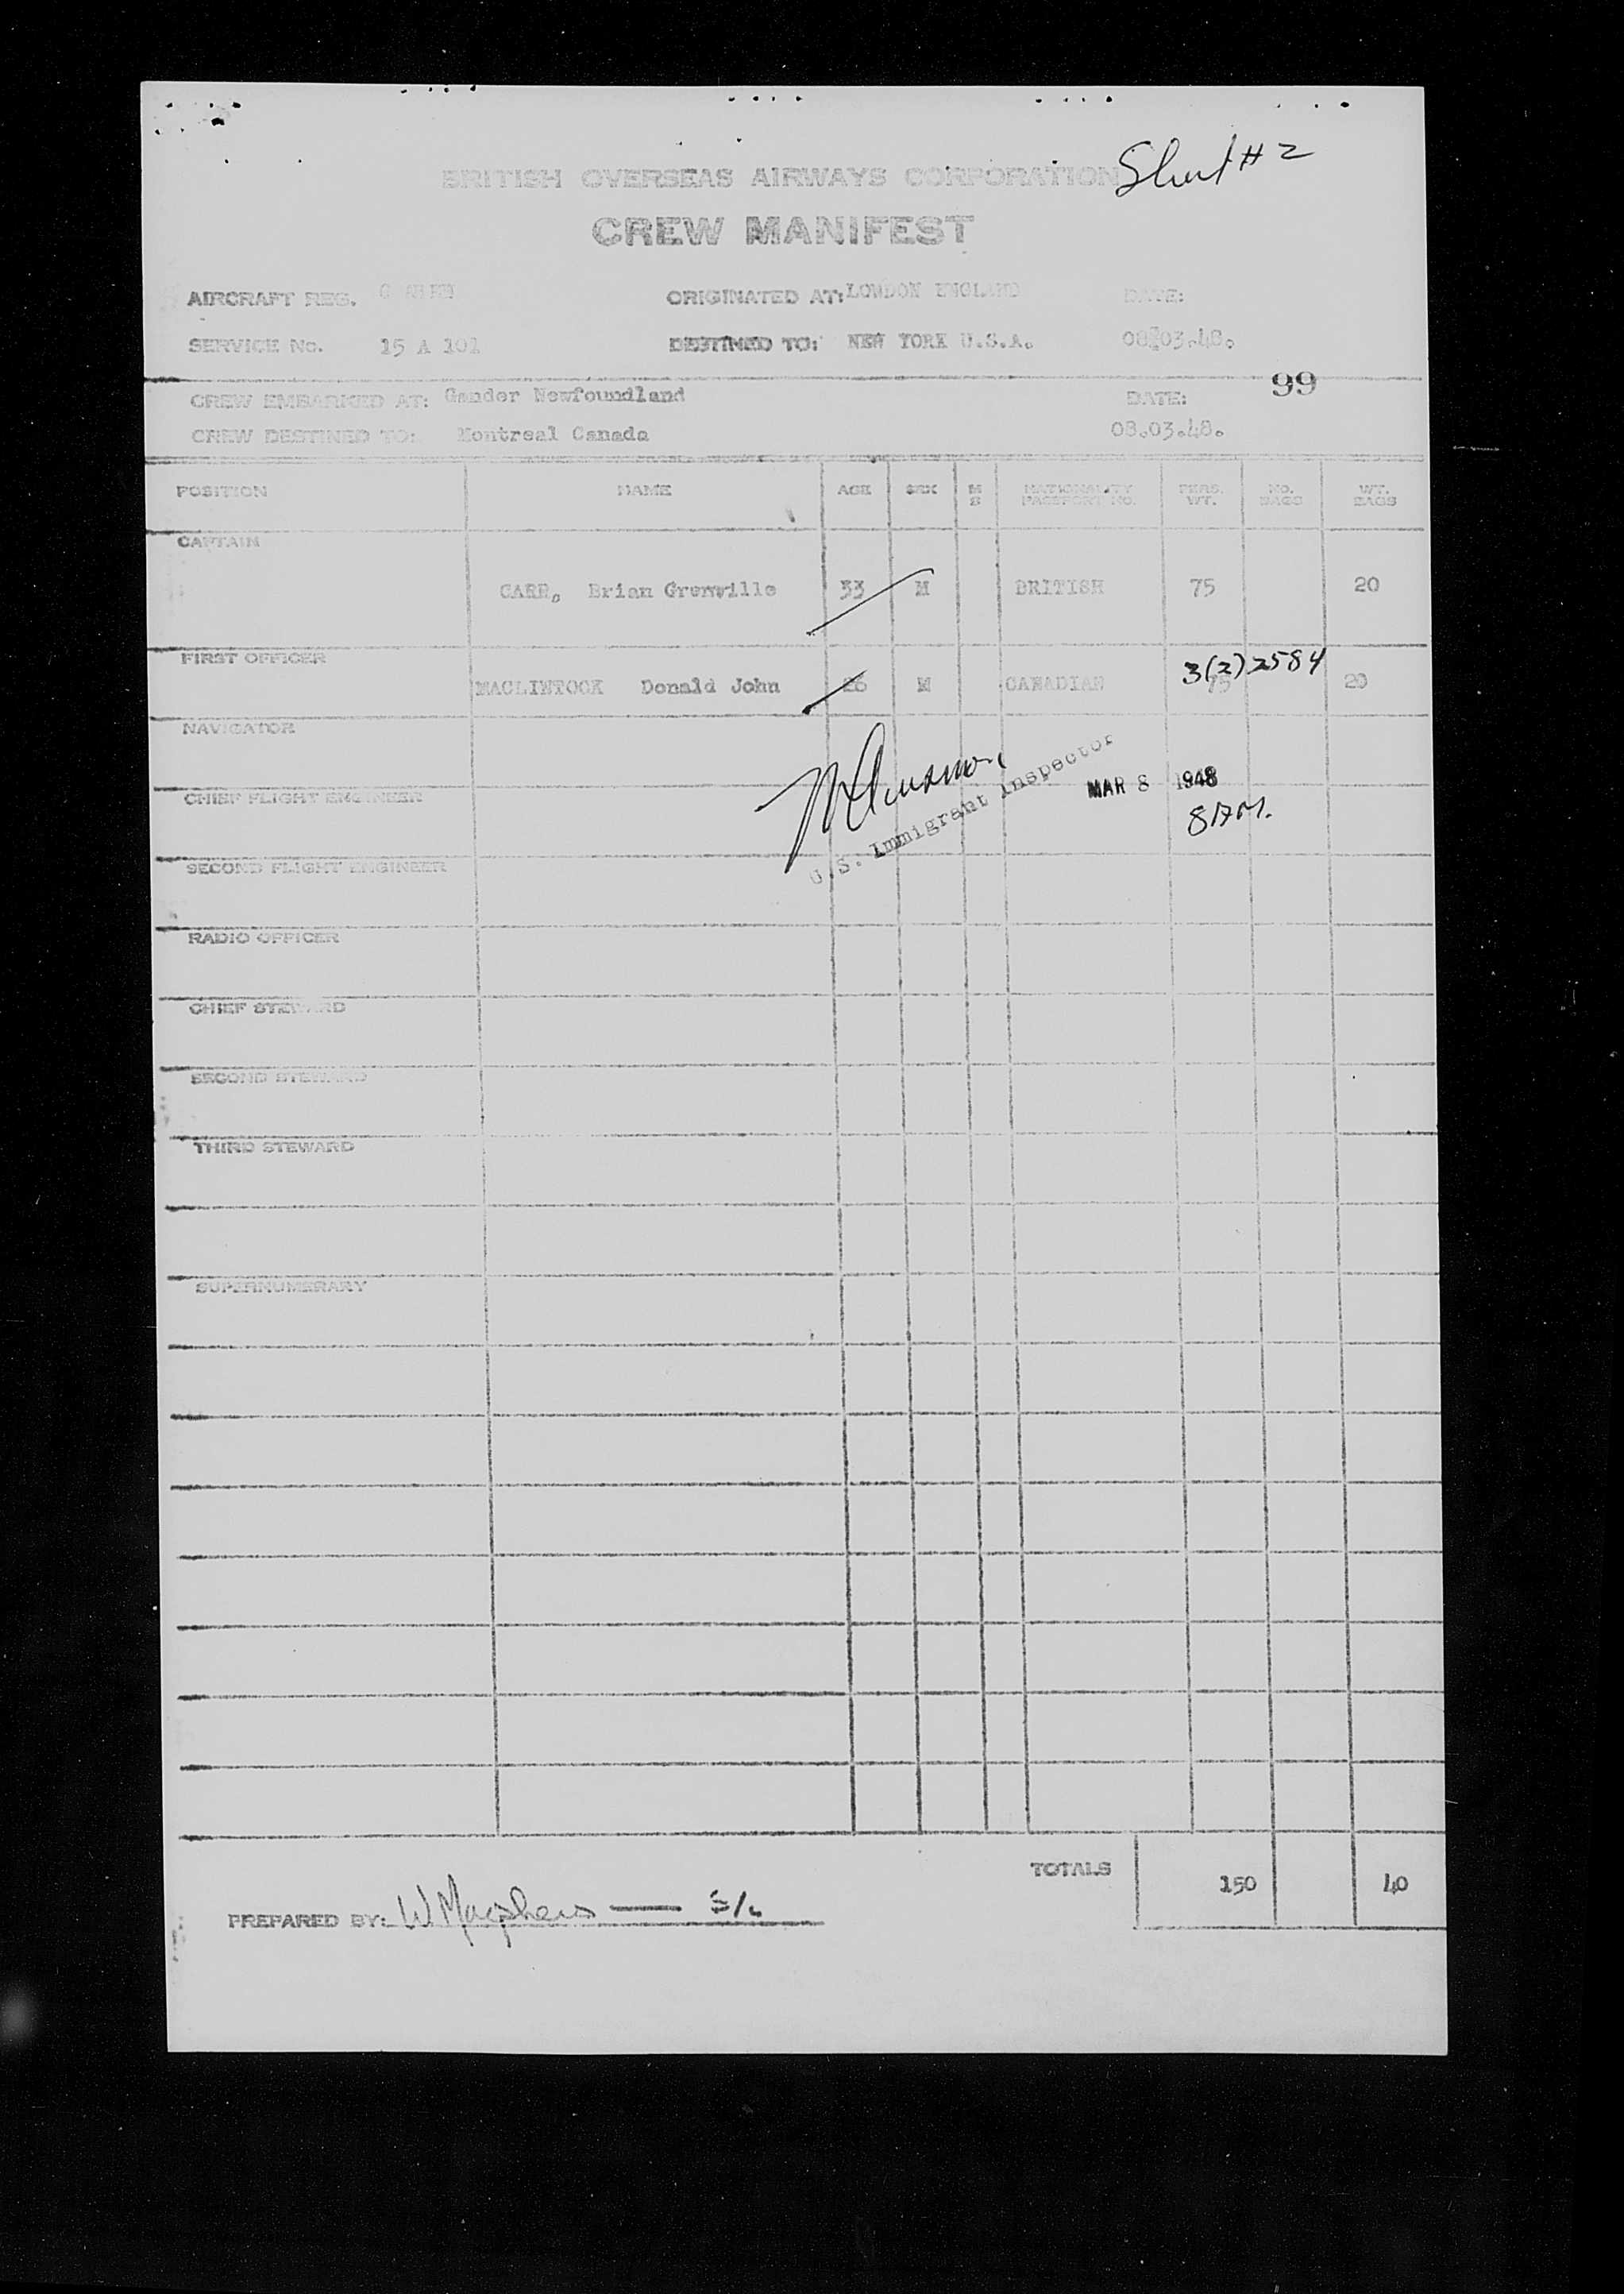 Sheet #2
BRITISH OVERSEAS AIRWAYS CORPORATION
CREW MANIFEST
AIRCRAFT REG. ORIGINATED AT: LONDON ENGLAND DATE:
SERVICE No. 15 A 101 DESTINED TO: NEW YORK U.S.A. 08.03.48.
99
CREW EMBARKED AT: Gander Newfoundland DATE:
CREW DESTINED TO: Montreal Canada 08.03.48.
POSITION NAME AGE SEX M S NATIONALITY PASSPORT NO. PERS. WT. NO. BAGS WT. BAGS
CAPTAIN
Brian Grenville 33 M BRITISH 75 20
FIRST OFFICER 3(2)2584
MACLINTOCK Donald John 26 M CANADIAN 75 20
NAVIGATOR
U.S. Immigrant Inspector
MAR 8 1948
CHIEF FLIGHT ENGINEER
8 AM.
SECOND FLIGHT ENGINEER
RADIO OFFICER
CHIEF STEWARD
SECOND STEWARD
THIRD STEWARD
SUPERNUMERARY
TOTALS 150 40
PREPARED BY: